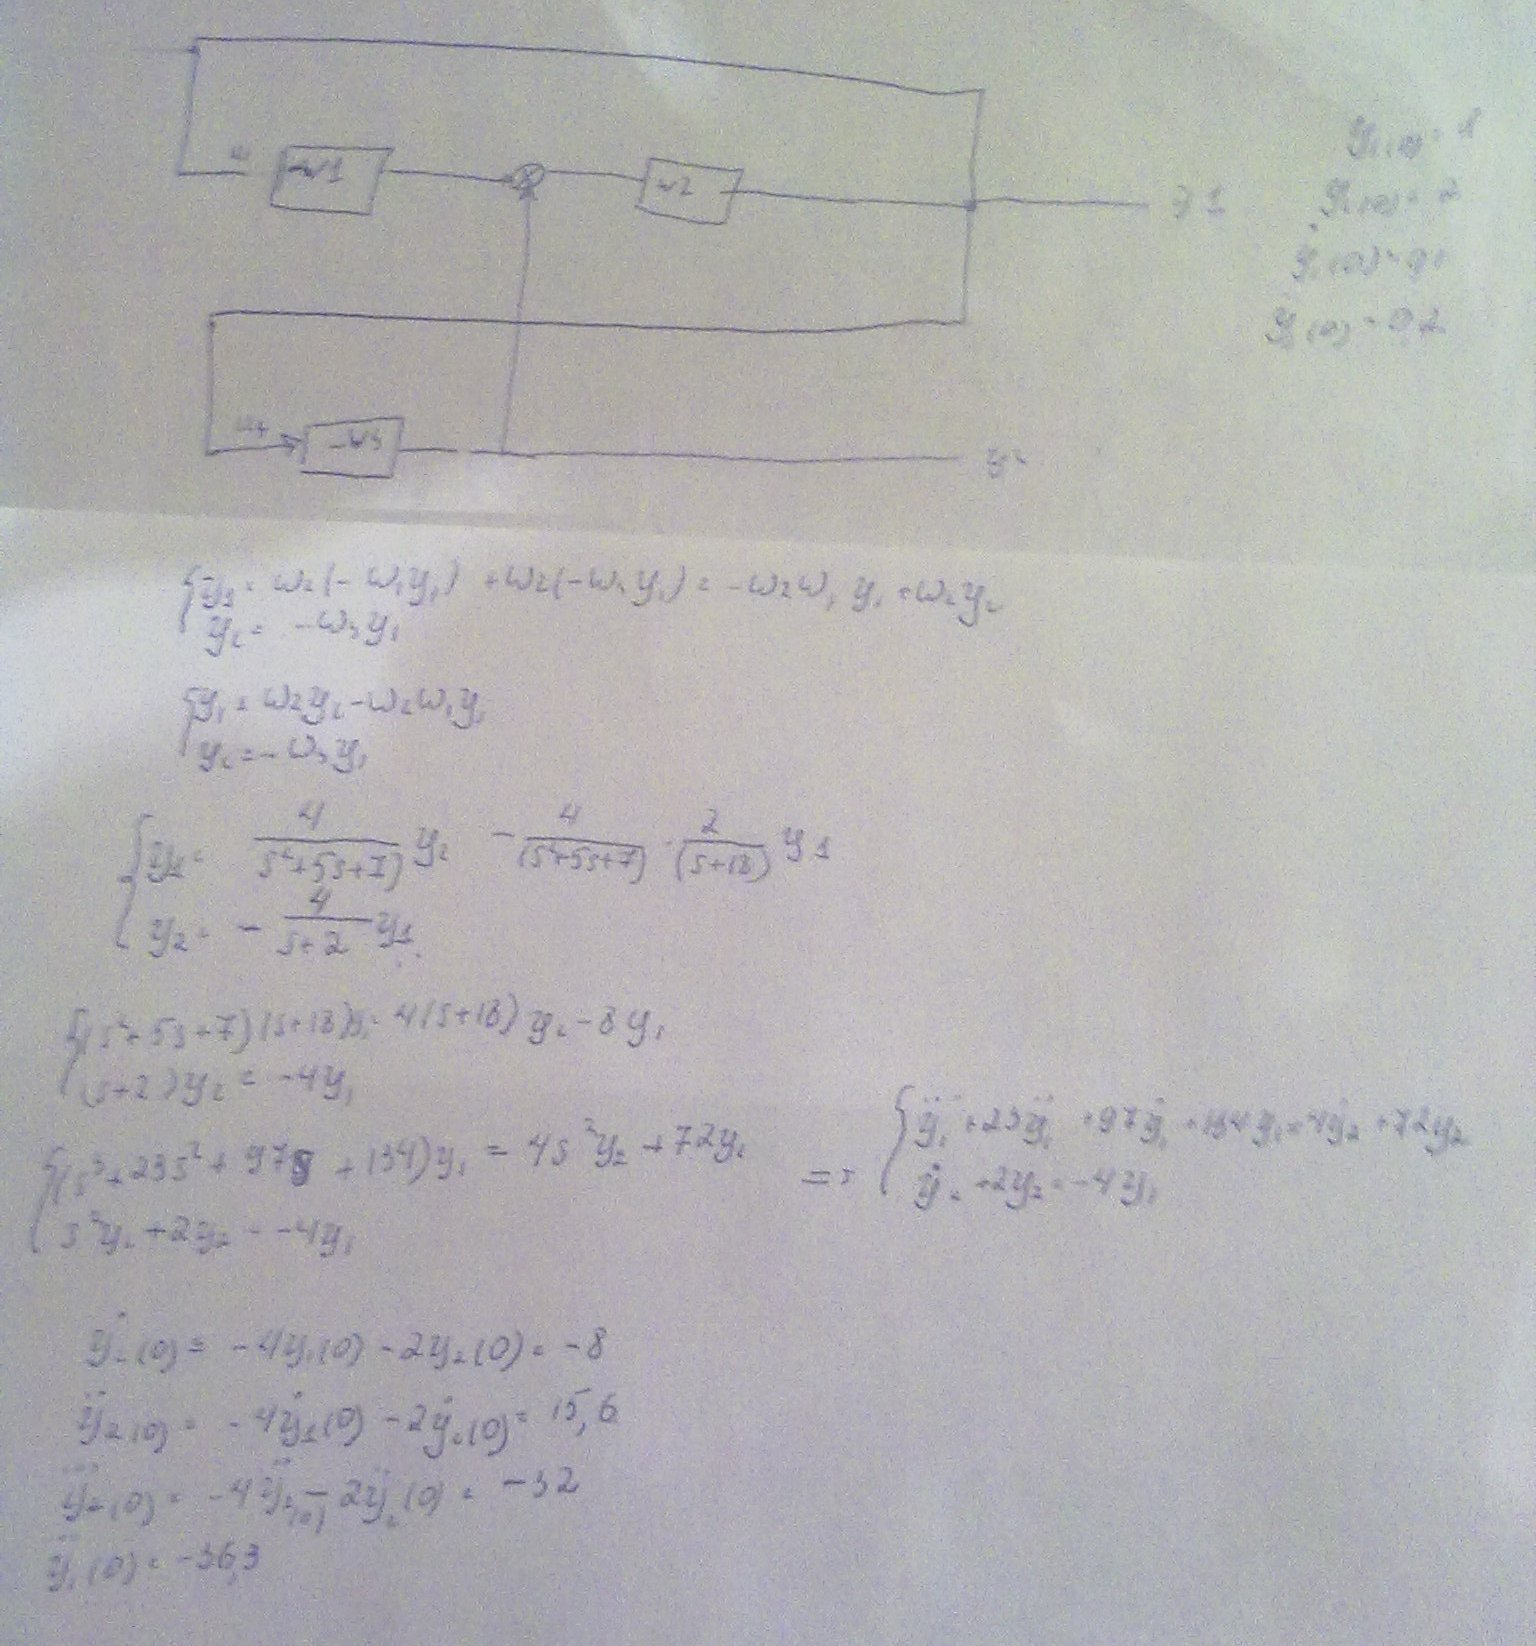 -w1
w2
y1
y1(0) = 1
y2(0) = 2
ẏ1(0) = 0,1
(0) = 0,2
-w3
y2
y1 = w2(-w1y1) + w2(-w3y1) = -w2w1 y1 + w2y2
y2 = -w3y1
y1 = w2y2 - w2w1y1
y2 = -w3y1
y1 = 4/(s²+5s+7) y2 - 4/(s²+5s+7) · 2/(s+18) y1
y2 = - 4/(s+2) y1
(s²+5s+7)(s+18)y1 = 4(s+18)y2 - 8y1
(s+2)y2 = -4y1
(s³+23s²+97s+134)y1 = 4s²y2 + 72y2
s²y2 + 2y2 = -4y1
=> y⃛1 + 23ÿ1 + 97ẏ1 + 134y1 = 4ẏ2 + 72y2
ẏ2 + 2y2 = -4y1
ẏ2(0) = -4y1(0) - 2y2(0) = -8
ÿ2(0) = -4ẏ1(0) - 2ẏ2(0) = 15,6
y⃛2(0) = -4ÿ2(0) - 2ÿ2(0) = -32
y⃛1(0) = -36,3